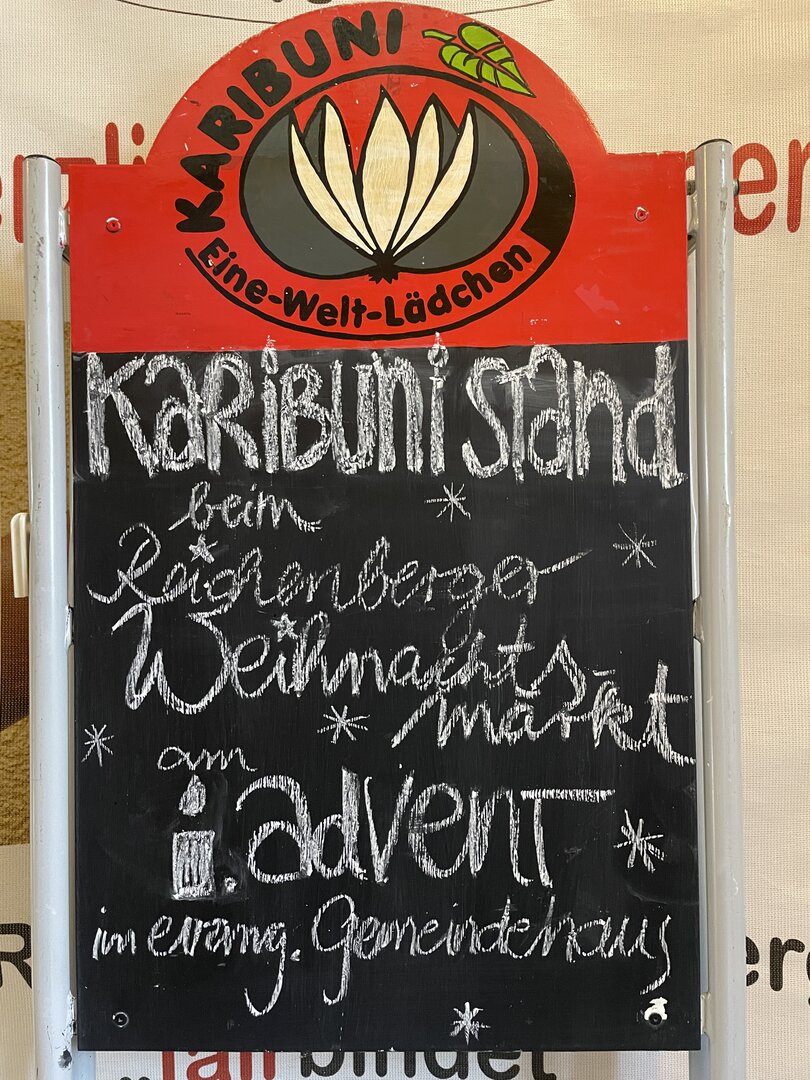 KARIBUNI
Eine-Welt-Lädchen
KaRiBuni Stand
beim
Reichenberger
Weihnachts-
markt
am
1. advent
im evang. Gemeindehaus
bindet